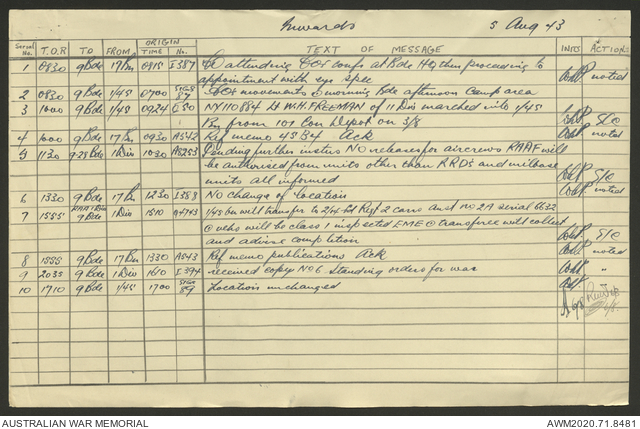 Inwards 5 Aug 43
ORIGIN
Serial No. T.O.R TO FROM TIME No. TEXT OF MESSAGE INTLS ACTIONS
1 0830 9 Bde 17 Bn 0815 I387 CO attending COs Confs at Bde HQ then proceeding to
appointment with eye spec noted
2 0830 9 Bde 1/45 0700 SIGS 87 COs movements morning Bde afternoon Camp area
3 1000 9 Bde 1/45 0924 I50 NY110884 Lt W.H. FREEMAN of 11 Div marched into 1/45
Bn from 101 Con Depot on 3/8 S/C
4 1000 9 Bde 17 Bn 0930 AS42 Ref memo 45B4 Ack noted
5 1130 9-28 Bde 1 Div 1030 Pending further instrs NO releases for aircrews RAAF will
be authorised from units other than RRDs and
units all informed S/C
6 1330 9 Bde 17 Bn 1230 I388 NO change of location noted
7 1555 9 Bde 1 Div 1510 1/45 Bn will transfer to 2/14 Fd Regt 2 carrs and NO 2A serial 6632
vehs will be class 1 inspected EME transferee will collect
and advise completion S/C
8 1555 9 Bde 17 Bn 1330 AS43 Ref memo publications Ack noted
9 2035 9 Bde 1 Div 1610 I394 received copy No 6 Standing orders for war "
10 1710 9 Bde 1/45 1700 SIGS 89 Location unchanged
AUSTRALIAN WAR MEMORIAL AWM2020.71.8481